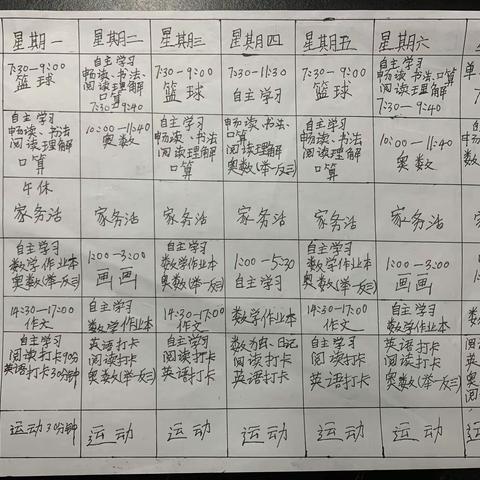 星期一 星期二 星期三 星期四 星期五 星期六
7:30-9:00
篮球
自主学习
畅读、书法、
阅读理解
口算
7:30-9:40
7:30-9:00
篮球
7:30-11:30
自主学习
7:30-9:00
篮球
自主学习
畅读、书法、口算
阅读理解
7:30-9:40
单
自主学习
畅读、书法
阅读理解
口算
10:00-11:40
奥数
自主学习
畅读、书法
阅读理解
口算
畅读、书法
口算
阅读理解
奥数(举一反三)
自主学习
畅读、书法、
阅读理解
口算
10:00-11:40
奥数
午休
家务活 家务活 家务活 家务活 家务活 家务活
自主学习
数学作业本
奥数(举一反三)
1:00-3:00
画画
自主学习
数学作业本
奥数(举一反三)
1:00-5:30
自主学习
自主学习
数学作业本
奥数(举一反三)
1:00-3:00
画画
14:30-17:00
作文
自主学习
数学作业本
14:30-17:00
作文
数学作业本
14:30-17:00
作文
自主学习
数学作业本
自主学习
阅读打卡90分
英语打卡30分钟
英语打卡
阅读打卡
奥数(举一反三)
自主学习
阅读打卡
英语打卡
日记
阅读打卡
英语打卡
自主学习
阅读打卡
英语打卡
英语打卡
阅读打卡
奥数(举一反三)
运动30分钟 运动 运动 运动 运动 运动